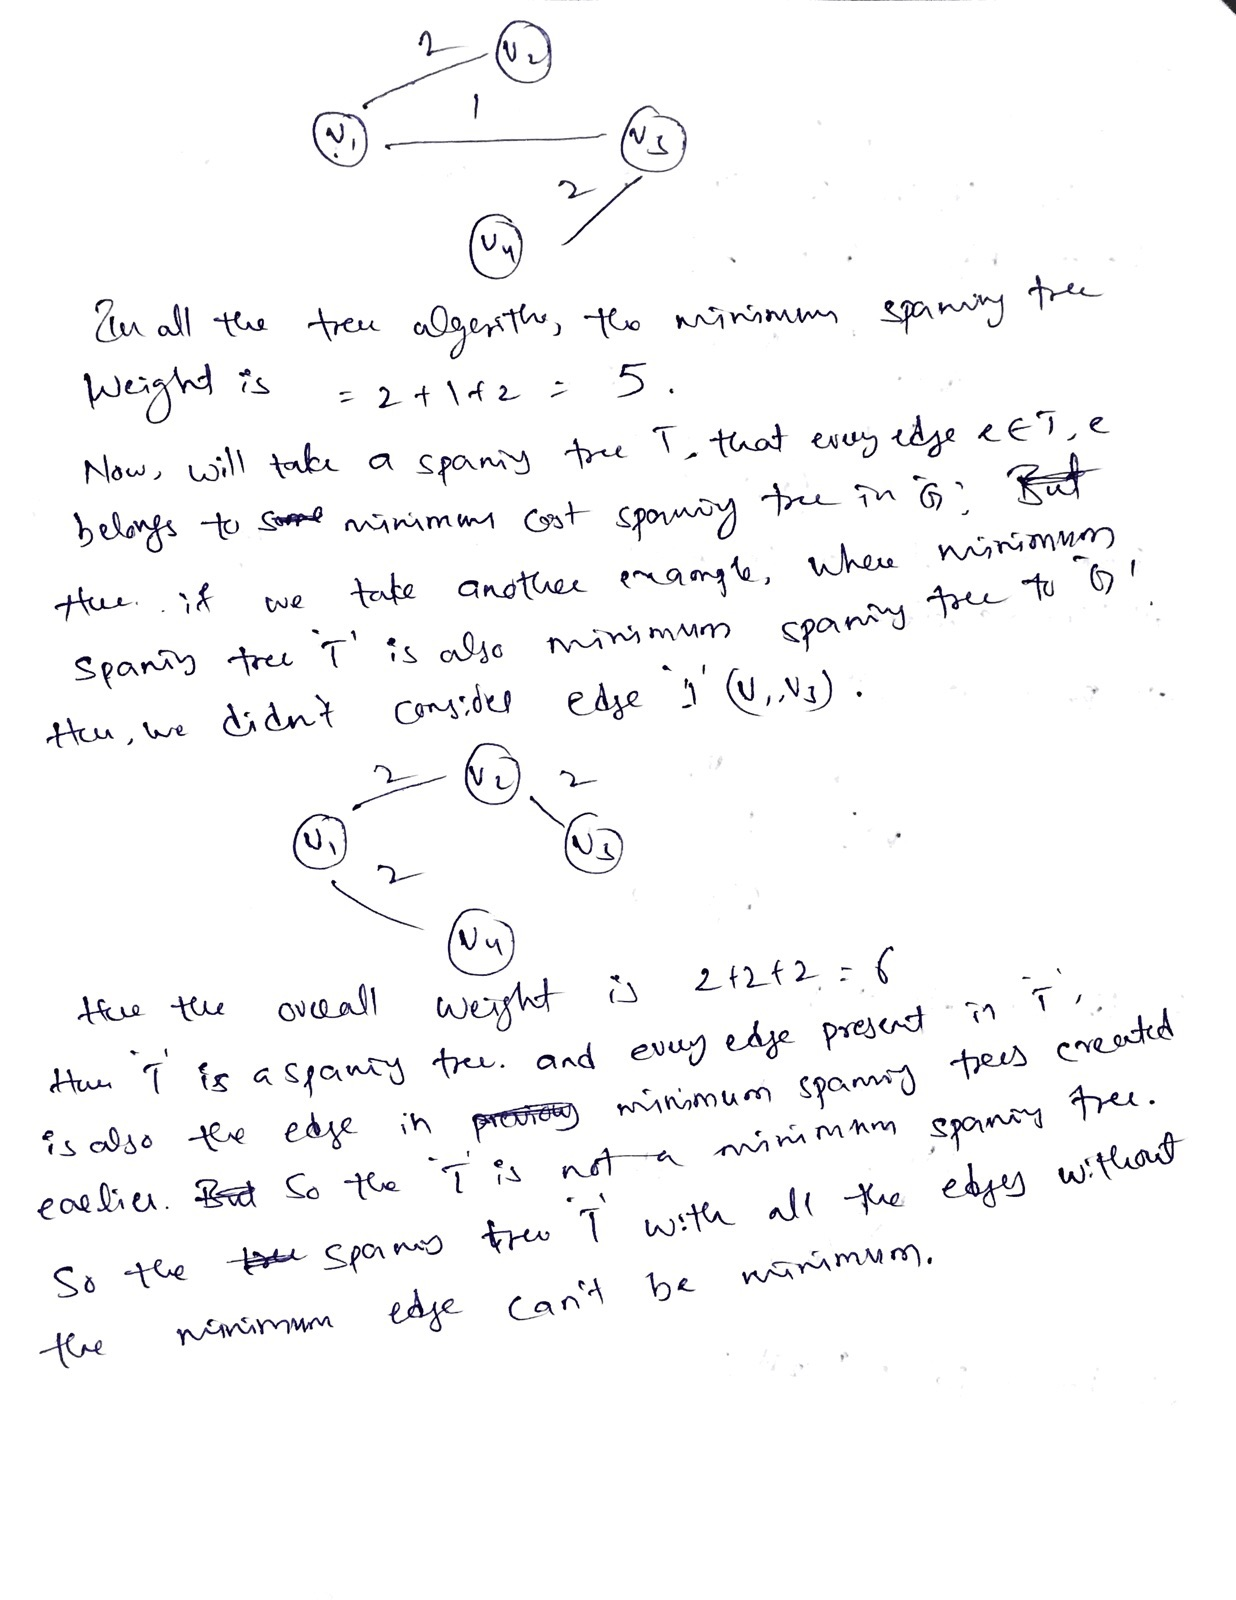 2 V2
1
V1 V3
2
V4
In all the tree algorithm, the minimum spaning tree
Weight is = 2+1+2 = 5.
Now, will take a spaning tree T, that every edge e∈T, e
belongs to some minimum cost spaning tree in 'G'. But
Here if we take another example, where minimum
Spaning tree 'T' is also minimum spaning tree to 'G'
Here, we didn't consider edge '1' (V1,V3).
2 V2 2
V1 V3
2
V4
Here the overall weight is 2+2+2 = 6
Here 'T' is a spaning tree. and every edge present in 'T',
is also the edge in previous minimum spaning trees created
earlier. But So the 'T' is not a minimum spaning tree.
So the tree spaning tree 'T' with all the edges without
the minimum edge can't be minimum.